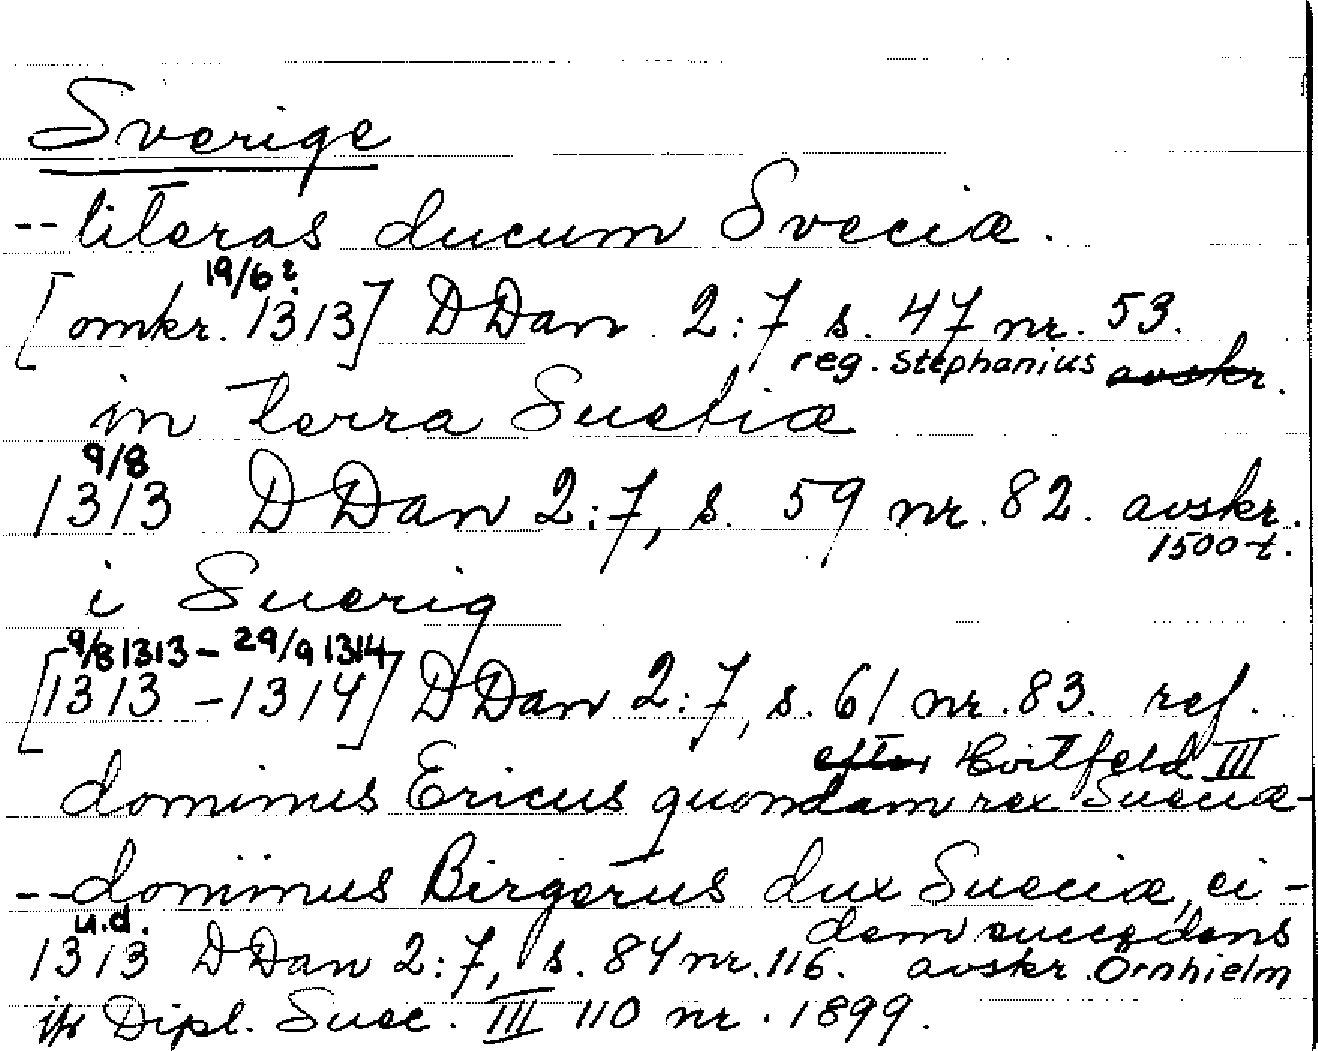 Sverige
-- literas ducum Sveciæ.
19/6 ?
[omkr. 1313] DDan 2:7 s. 47 nr. 53.
reg. Stephanius avskr.
in terra Suetiæ
9/8
1313 DDan 2:7, s. 59 nr. 82. avskr.
1500-t.
i Suerig
9/8 1313 - 29/9 1314
[1313 - 1314] DDan 2:7, s. 61 nr. 83. ref.
efter Hvitfeld III
dominus Ericus quondam rex Sueciæ -
-- dominus Birgerus dux Sueciæ, ei-
dem succedens
u.d.
1313 DDan 2:7, s. 84 nr. 116. avskr. Örnhielm
Dipl. Suec. III 110 nr. 1899.